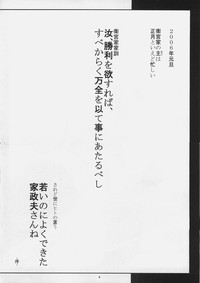 2006年元旦
衛宮家の主は
正月といえど忙しい
衛宮家家訓
汝、勝利を欲すれば、
すべからく万全を以て事にあたるべし
若いのによくできた
家政夫さんね